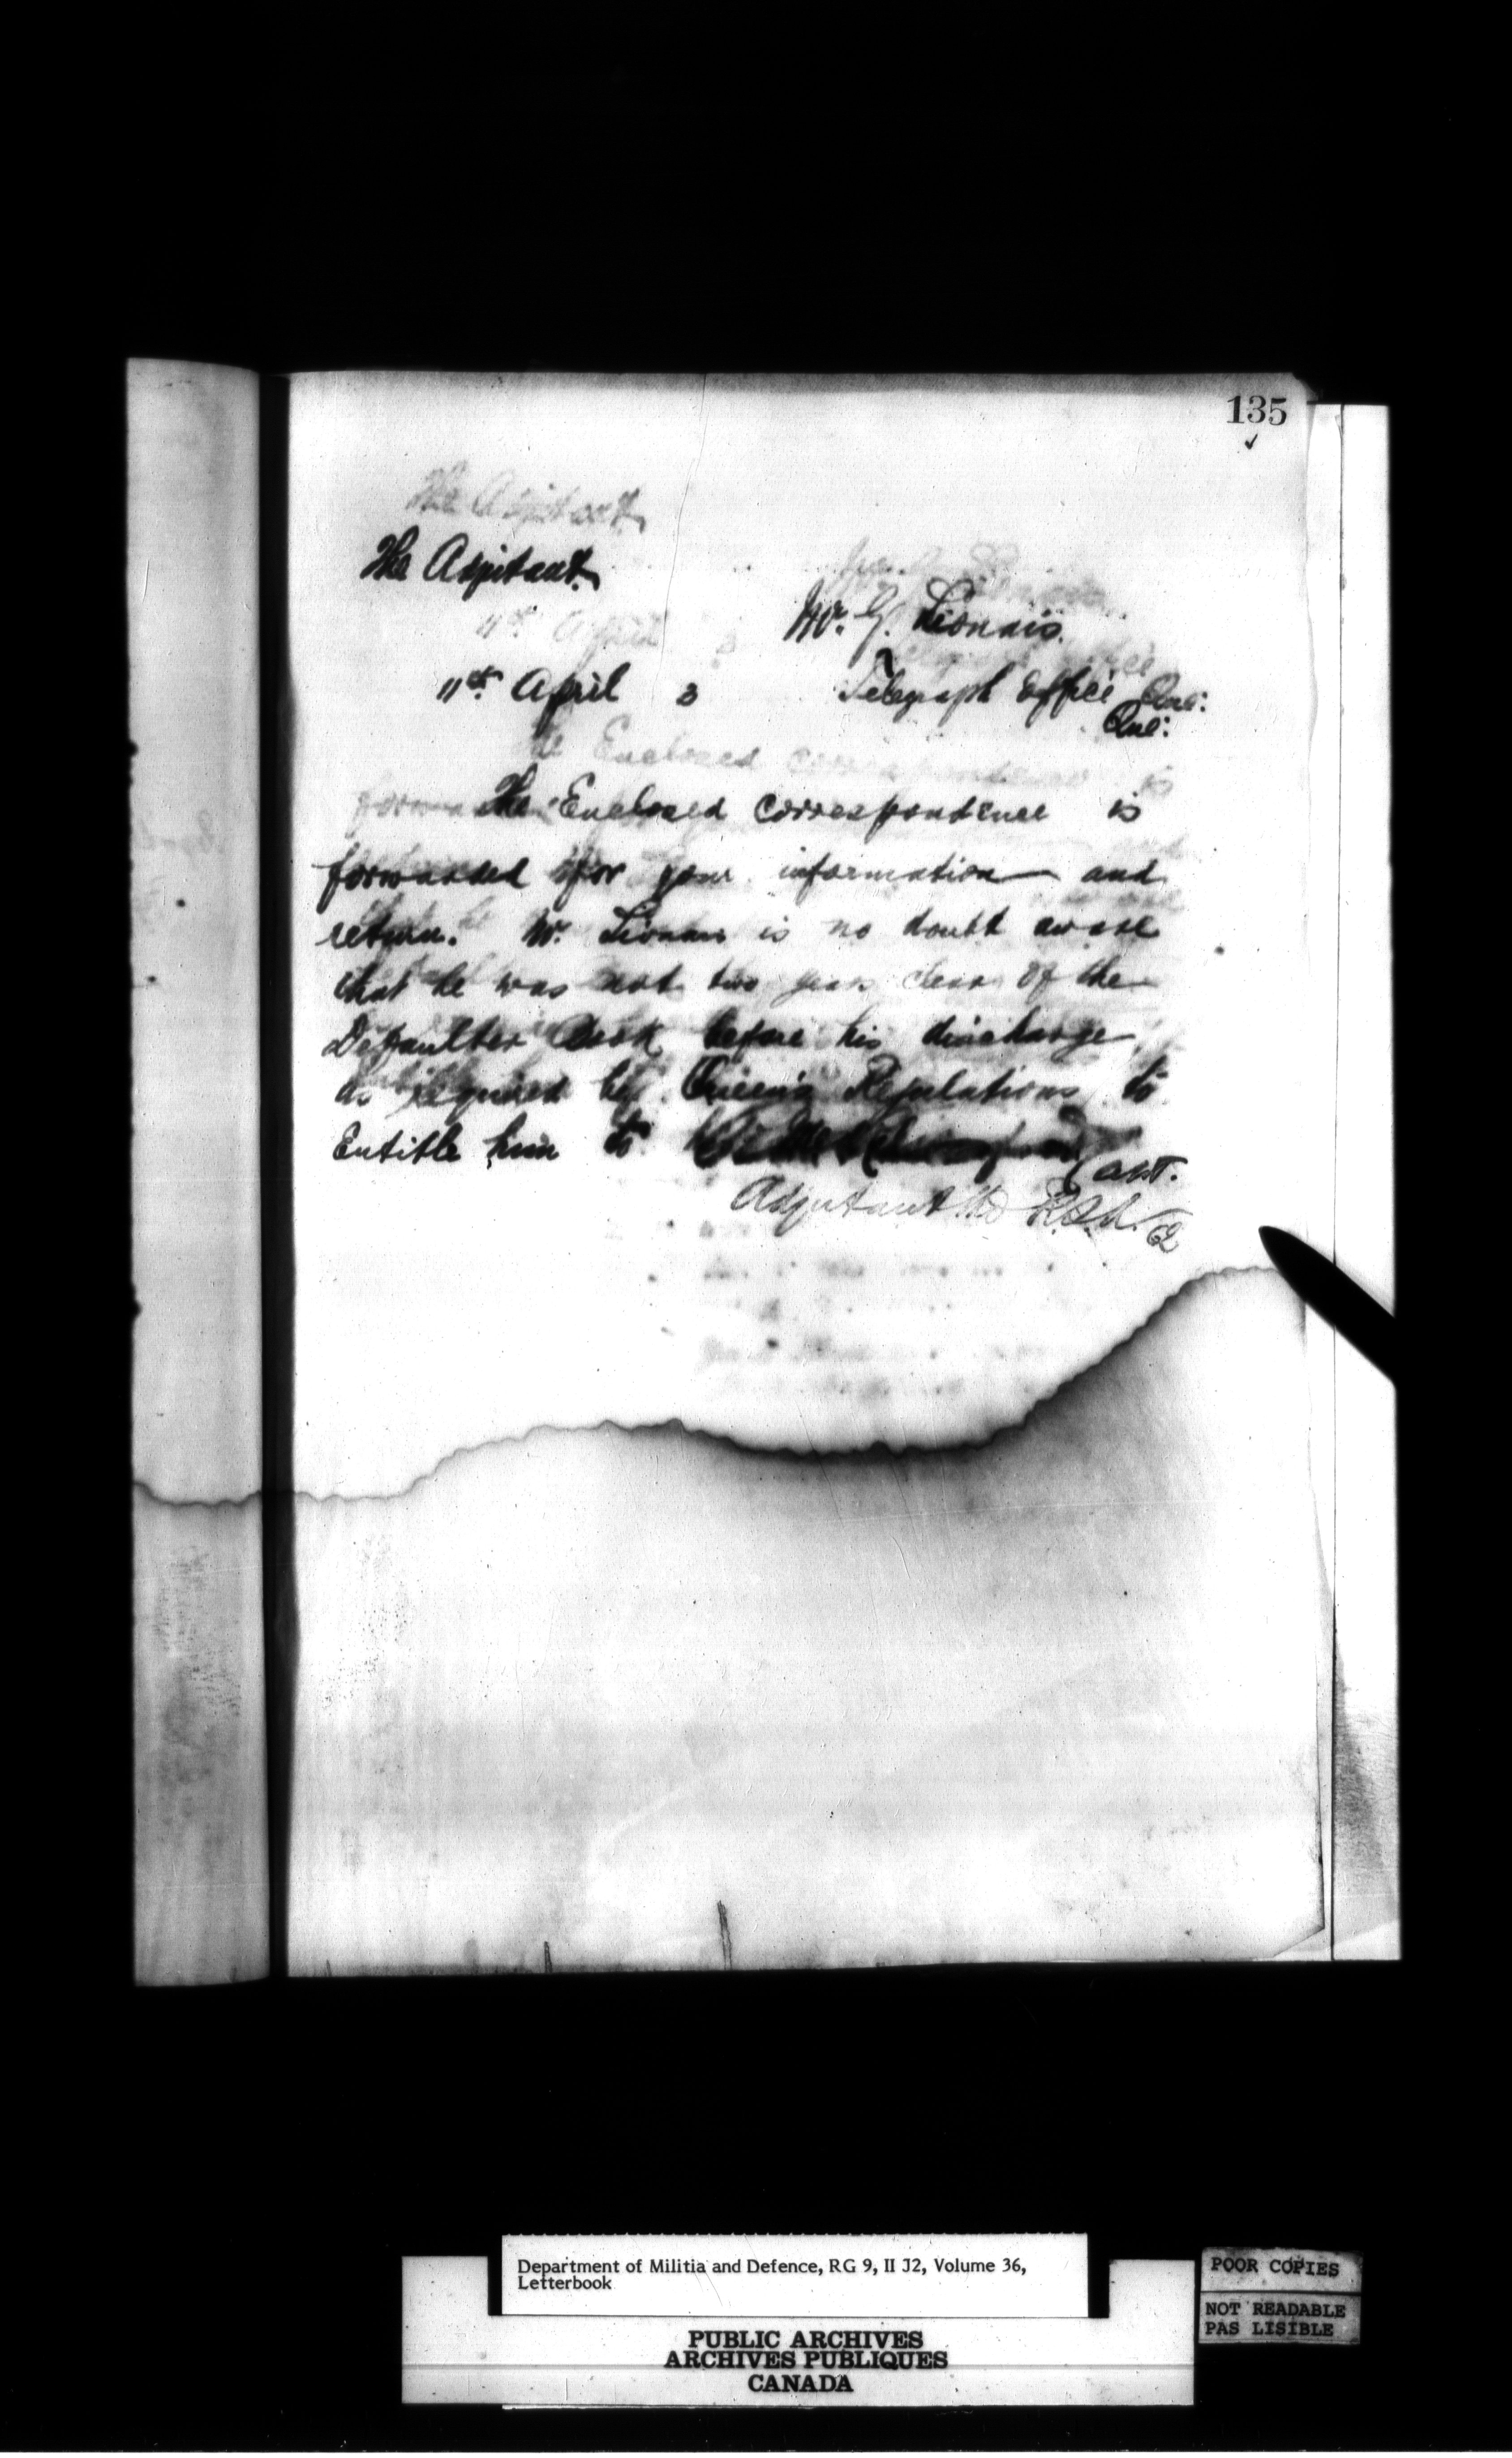 135
The Adjutant
The Adjutant.
Mr. G. Lionais.
11th April 3 Telegraph Office Que:
Que:
The Enclosed correspondence is
The Enclosed correspondence is
forwarded for your information and
return. Mr. Lionais is no doubt aware
that he was not two years clear of the
Defaulter Book before his discharge
as required by Queen's Regulations to
Entitle him to
Capt.
Adjutant
Department of Militia and Defence, RG 9, II J2, Volume 36,
Letterbook
PUBLIC ARCHIVES
ARCHIVES PUBLIQUES
CANADA
POOR COPIES
NOT READABLE
PAS LISIBLE